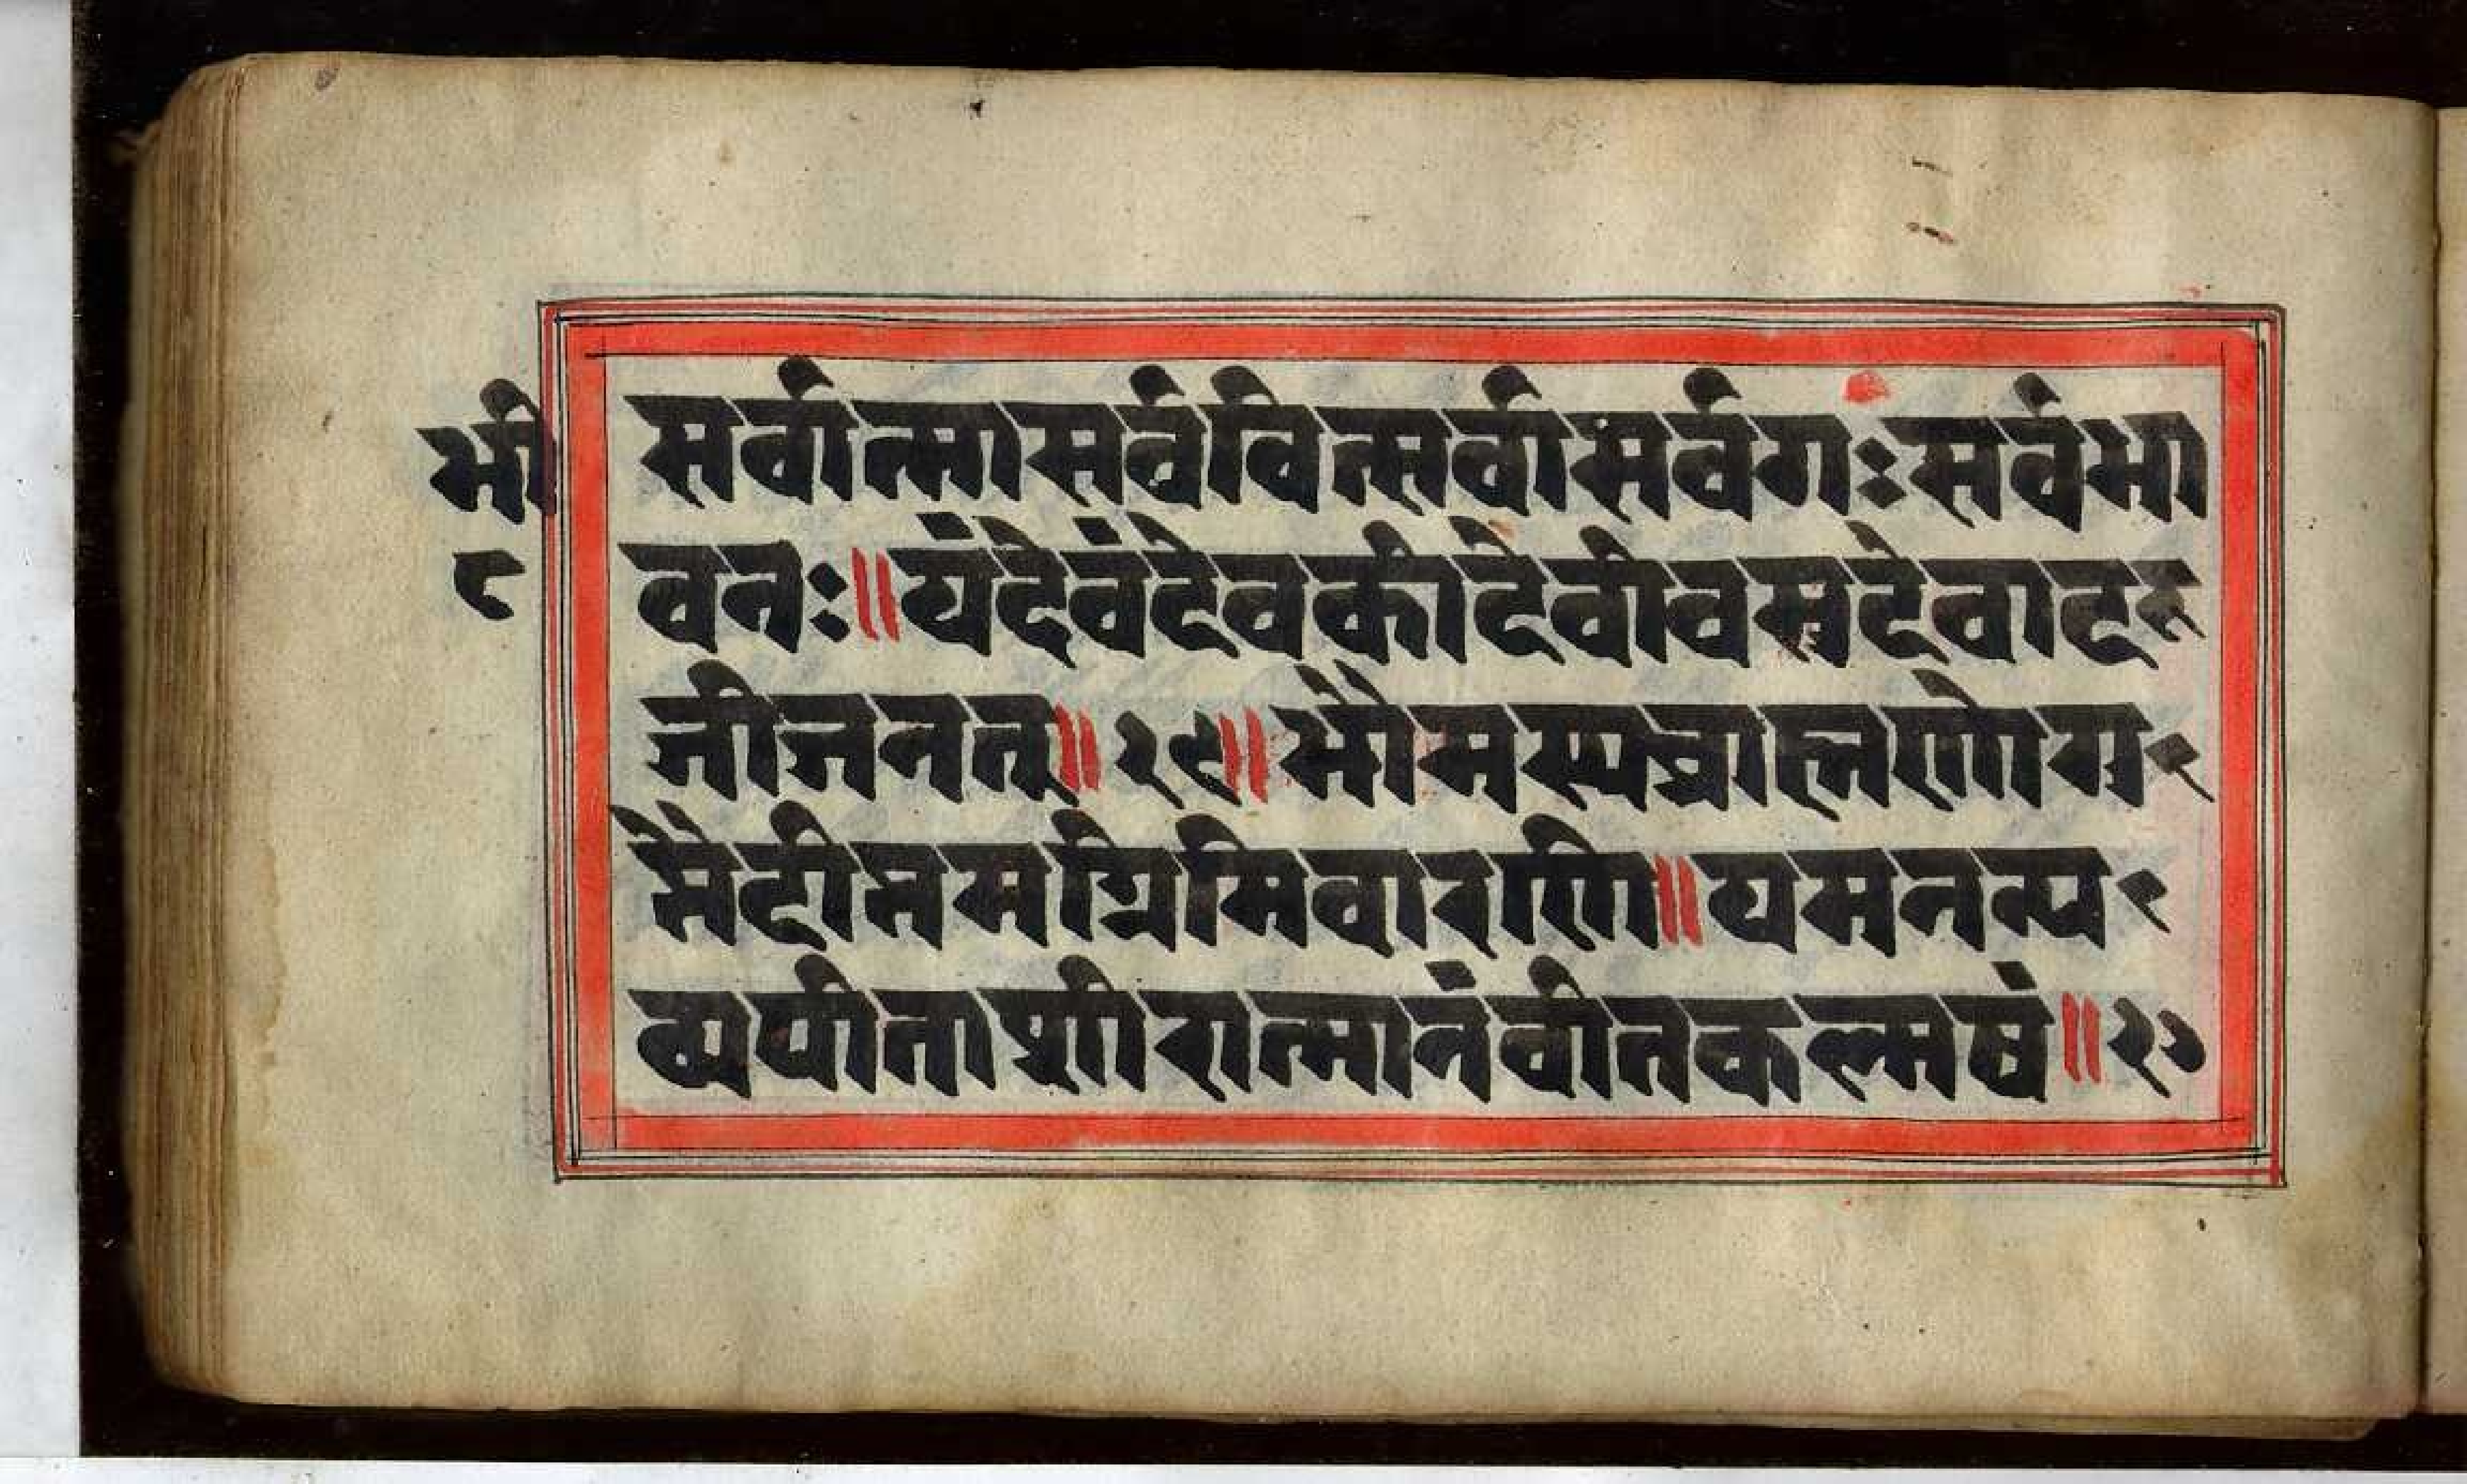 भी सर्वात्मासर्ववित्सर्वासर्वगःसर्वभा
८ वनः॥यंदेवंदेवकीदेवीवसदेवाद
जीजनत्॥१९॥भौमस्यब्राह्मणोग
मैदीप्तमग्निमिवारणि॥यमनन्य
व्यपीताशीरात्मानंवीतकल्मषं॥२०